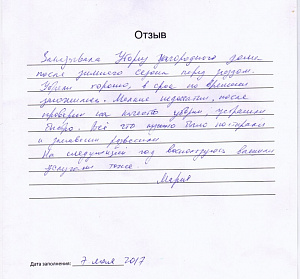 Отзыв
Заказывала Уборку загородного дома
после зимнего сезона перед
Убрали хорошо, в срок по времени
уложились. Мелкие недочеты, после
проверки на качество уборки, устранили
быстро. Всё что нужно было постирали
и занавески развесили
На следующий год воспользуюсь вашими
услугами тоже.
Мария
Дата заполнения: 7 мая 2017